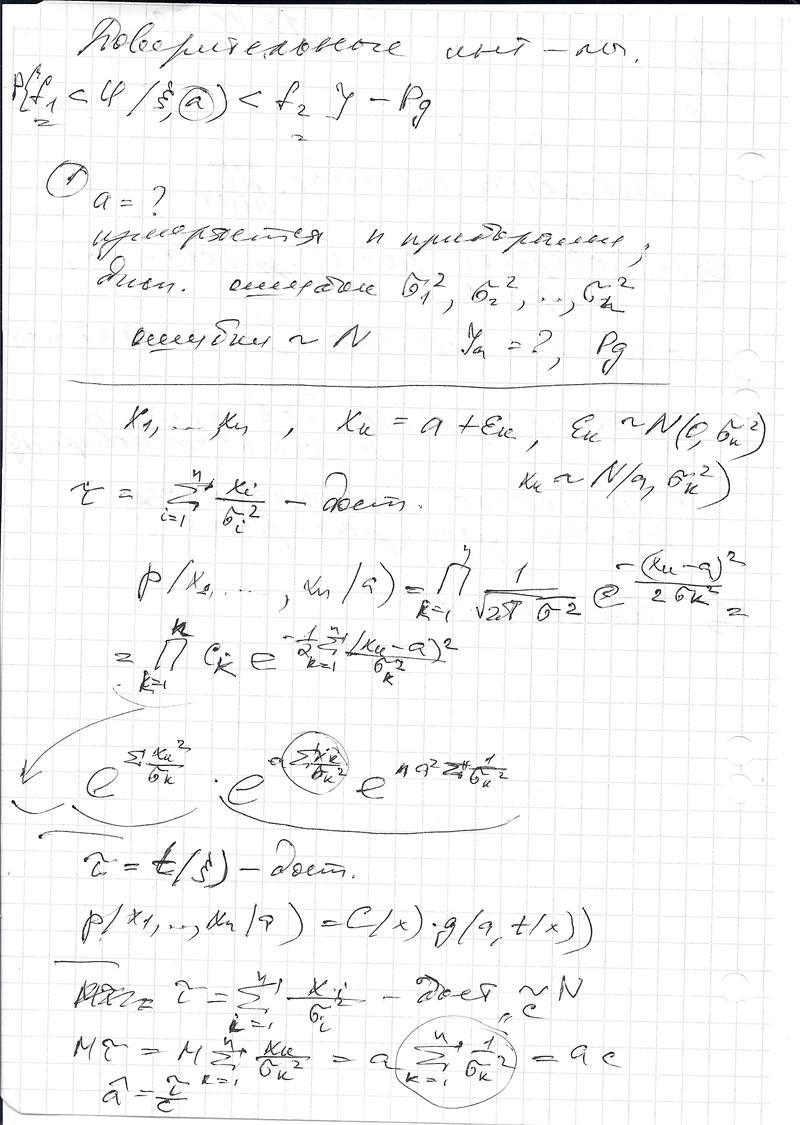 Доверительные инт-лы.
P{f₁ < φ(ξ, a) < f₂} = Pg
① a = ?
измеряется n приборами,
дисп. ошибок σ₁², σ₂², .., σₙ²
ошибки ~ N Ja = ?, Pg
x₁, ..., xₙ, xₖ = a + εₖ, εₖ ~ N(0, σₖ²)
xₖ ~ N(a, σₖ²)
τ = Σᵢ₌₁ⁿ xᵢ/σᵢ² – дост.
p(x₁, ..., xₙ/a) = ∏ₖ₌₁ⁿ 1/(√2π σ²) e^(-(xₖ-a)²/2σₖ²) =
= ∏ₖ₌₁ⁿ Cₖ e^(-1/2 Σₖ₌₁ⁿ (xₖ-a)²/σₖ²)
e^(Σ xₖ²/σₖ²) · e^(a Σ xₖ/σₖ²) e^(n a² Σ 1/σₖ²)
τ = t(ξ) – дост.
p(x₁, .., xₙ/a) = C(x)·g(a, t(x))
τ = Σᵢ₌₁ⁿ xᵢ/σᵢ² – дост, ~ N
c
Mτ = M Σₖ₌₁ⁿ xₖ/σₖ² = a Σₖ₌₁ⁿ 1/σₖ² = a c
â = τ/c